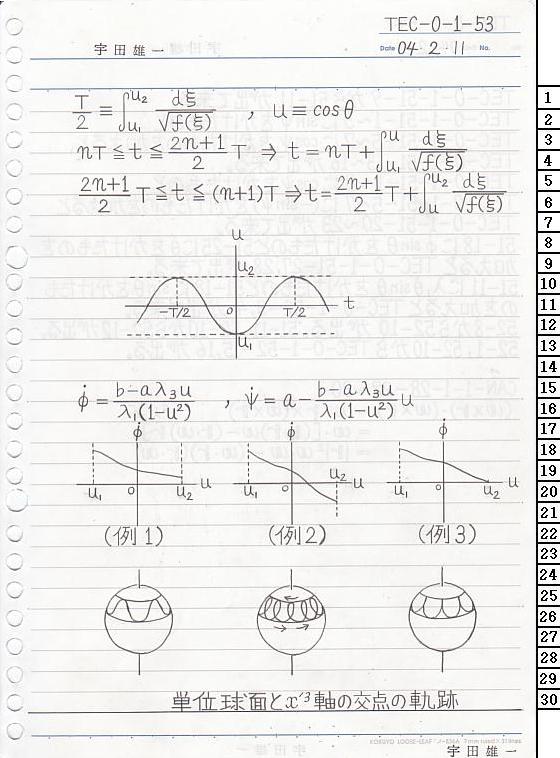 TEC-0-1-53
宇田雄一
Date 04・2・11 No.
T/2 ≡ ∫_{u₁}^{u₂} dξ/√f(ξ) , u ≡ cosθ
nT ≦ t ≦ (2n+1)/2 T ⇒ t = nT + ∫_{u₁}^{u} dξ/√f(ξ)
(2n+1)/2 T ≦ t ≦ (n+1)T ⇒ t = (2n+1)/2 T + ∫_{u}^{u₂} dξ/√f(ξ)
u
u₂
-T/2 0 T/2 t
u₁
φ̇ = (b-aλ₃u)/(λ₁(1-u²)) , ψ̇ = a - (b-aλ₃u)/(λ₁(1-u²)) u
φ̇ φ̇ φ̇
u₁ 0 u₂ u u₁ 0 u₂ u u₁ 0 u₂ u
(例1) (例2) (例3)
単位球面とx'³軸の交点の軌跡
KOKUYO LOOSE-LEAF ノ-836A 7mm ruled × 31 lines
宇田雄一
1
2
3
4
5
6
7
8
9
10
11
12
13
14
15
16
17
18
19
20
21
22
23
24
25
26
27
28
29
30